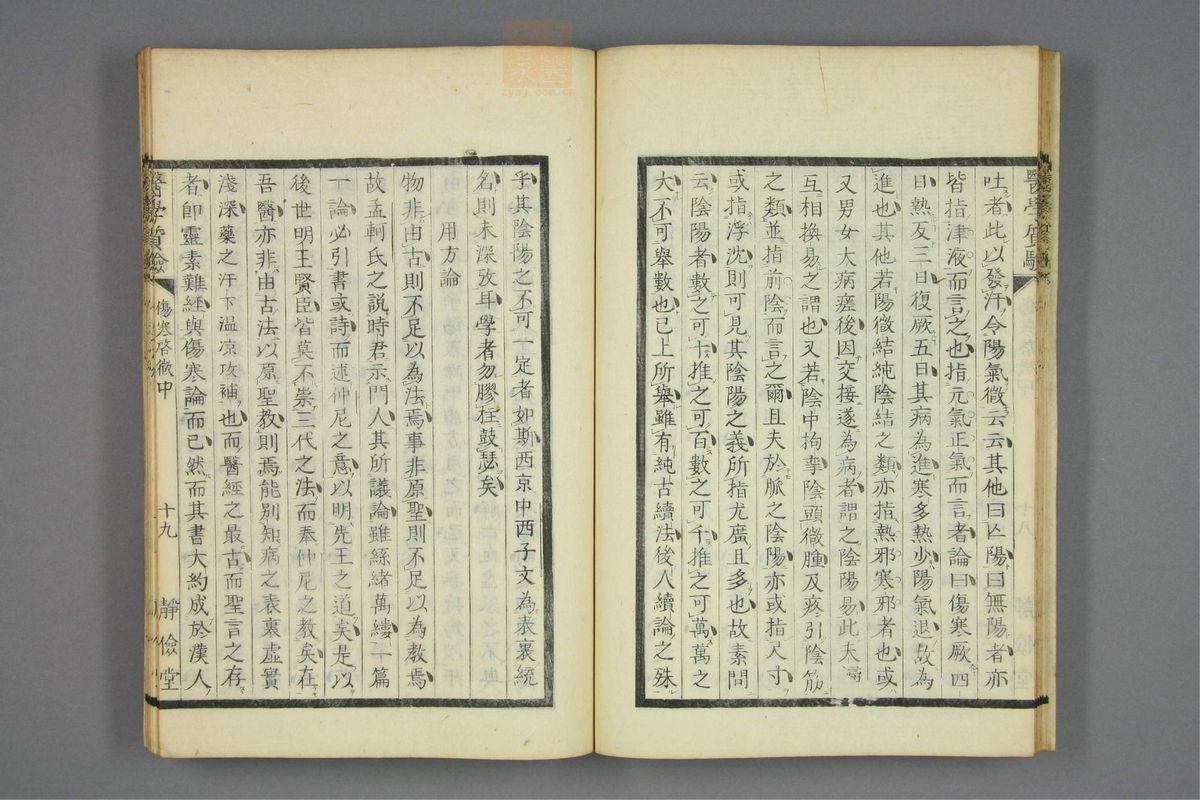 吐者此以發汗令陽氣微云云其他曰亡陽曰無陽者亦
皆指津液而言之也指元氣正氣而言者論曰傷寒厥四
日熱反三日復厥五日其病為進寒多熱少陽氣退故為
進也其他若陽微結純陰結之類亦指熱邪寒邪者也或
又男女大病瘥後因交接遂為病者謂之陰陽易此夫婦
互相換易之謂也又若陰中拘攣陰頭微腫及疼引陰筋
之類並指前陰而言之爾且夫於脈之陰陽亦或指尺寸
或指浮沈則可見其陰陽之義所指尤廣且多也故素問
云陰陽者數之可十推之可百數之可千推之可萬萬之
大不可舉數也已上所舉雖有純古續法後人續論之殊
醫學質驗
乎其陰陽之不可一定者如斯西京中西子文為表裏統
名則未深攷耳學者勿膠柱鼓瑟矣
用方論
物非由古則不足以為法焉事非原聖則不足以為教焉
故孟軻氏之說時君示門人其所議論雖絲緒萬縷一篇
一論必引書或詩而述仲尼之意以明先王之道矣是以
後世明王賢臣皆莫不崇三代之法而奉仲尼之教矣在
吾醫亦非由古法以原聖教則焉能別知病之表裏虛實
淺深藥之汗下温凉攻補也而醫經之最古而聖言之存
者即靈素難經與傷寒論而已然而其書大約成於漢人
醫學質驗
傷寒啓微中
十九
靜儉堂